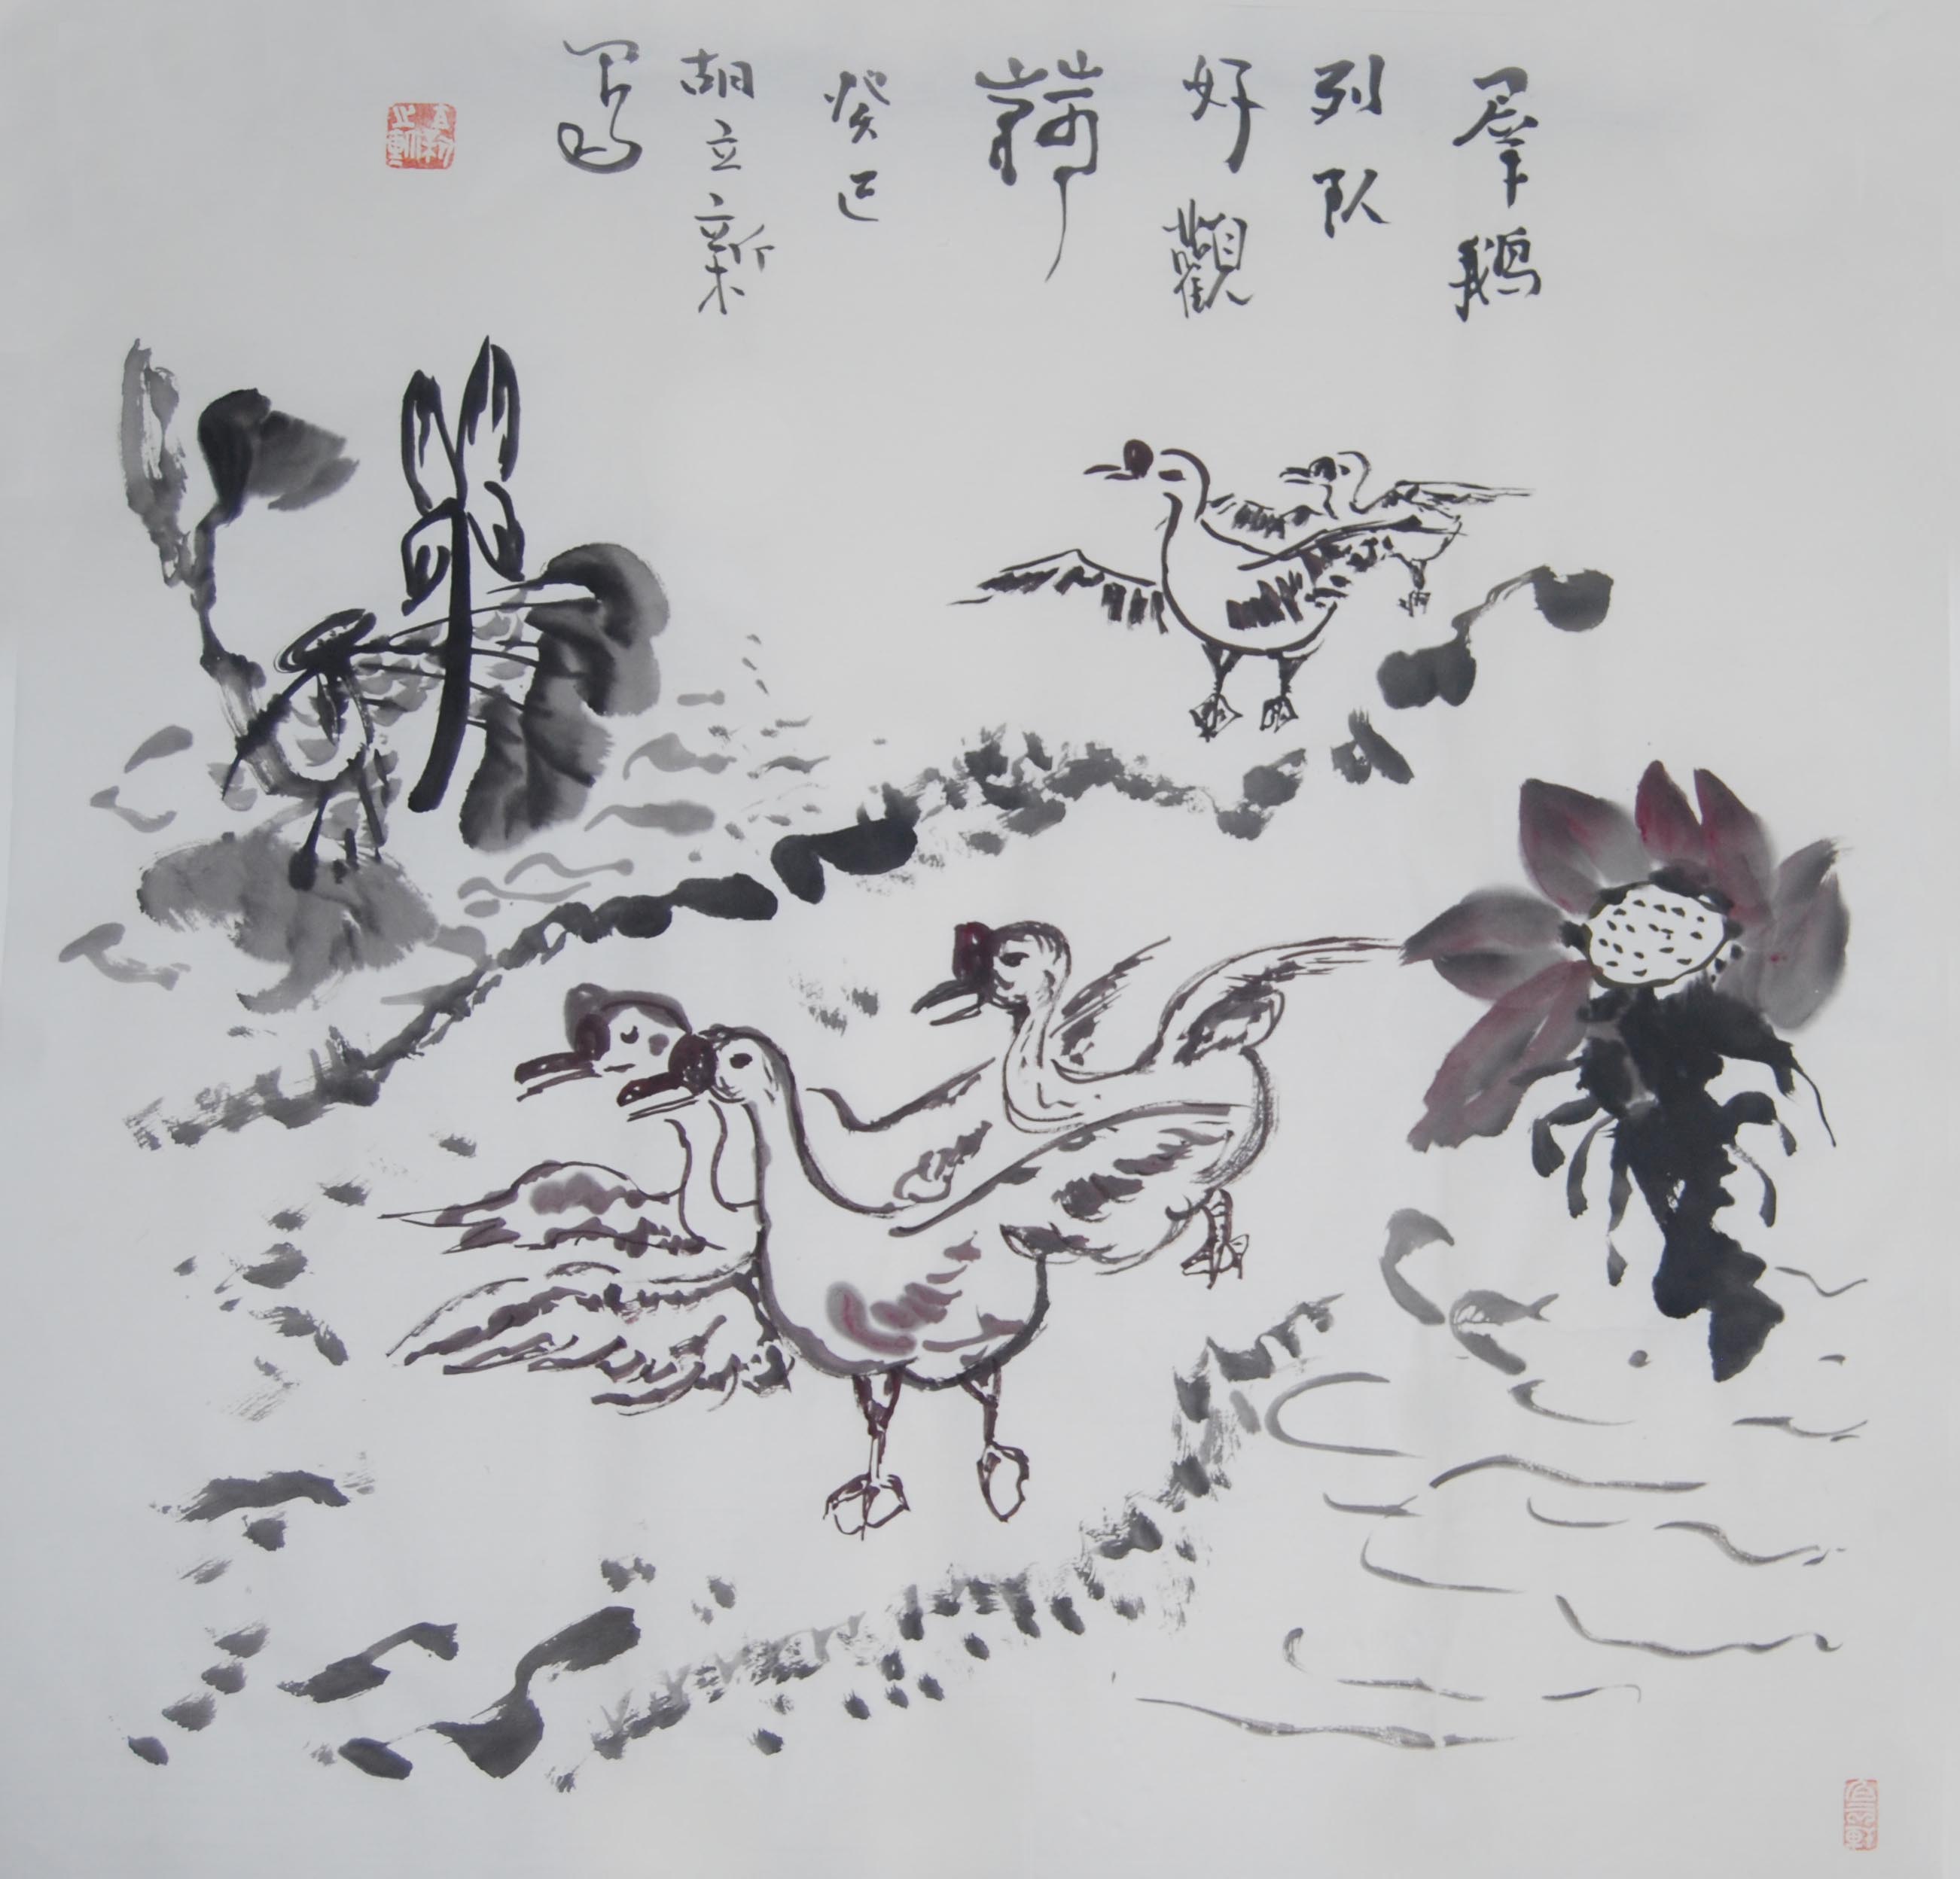 羣鹅
列队
好觀
荷
癸巳
胡立新
写